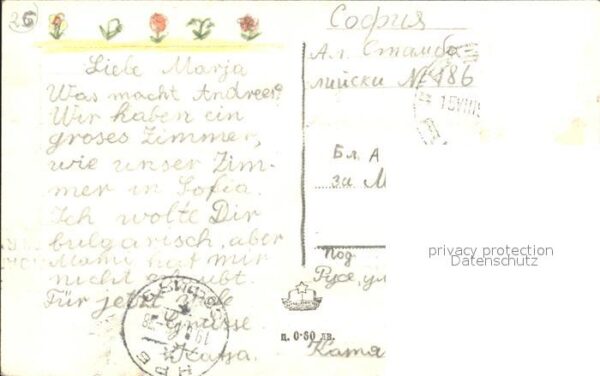 26
Liebe Marja
Was macht Andreer?
Wir haben ein
groses Zimmer,
wie unser Zim-
mer in Sofia.
Ich wolte Dir
bulgarisch, aber
Mami hat mir
nicht erlaubt.
Für jetzt viele
Grüsse
Katja.
София
Ал. Стамбо
лийски № 186
Бл. А
за М
Под
Русе, ул
ц. 0·80 лв.
Катя
privacy protection
Datenschutz